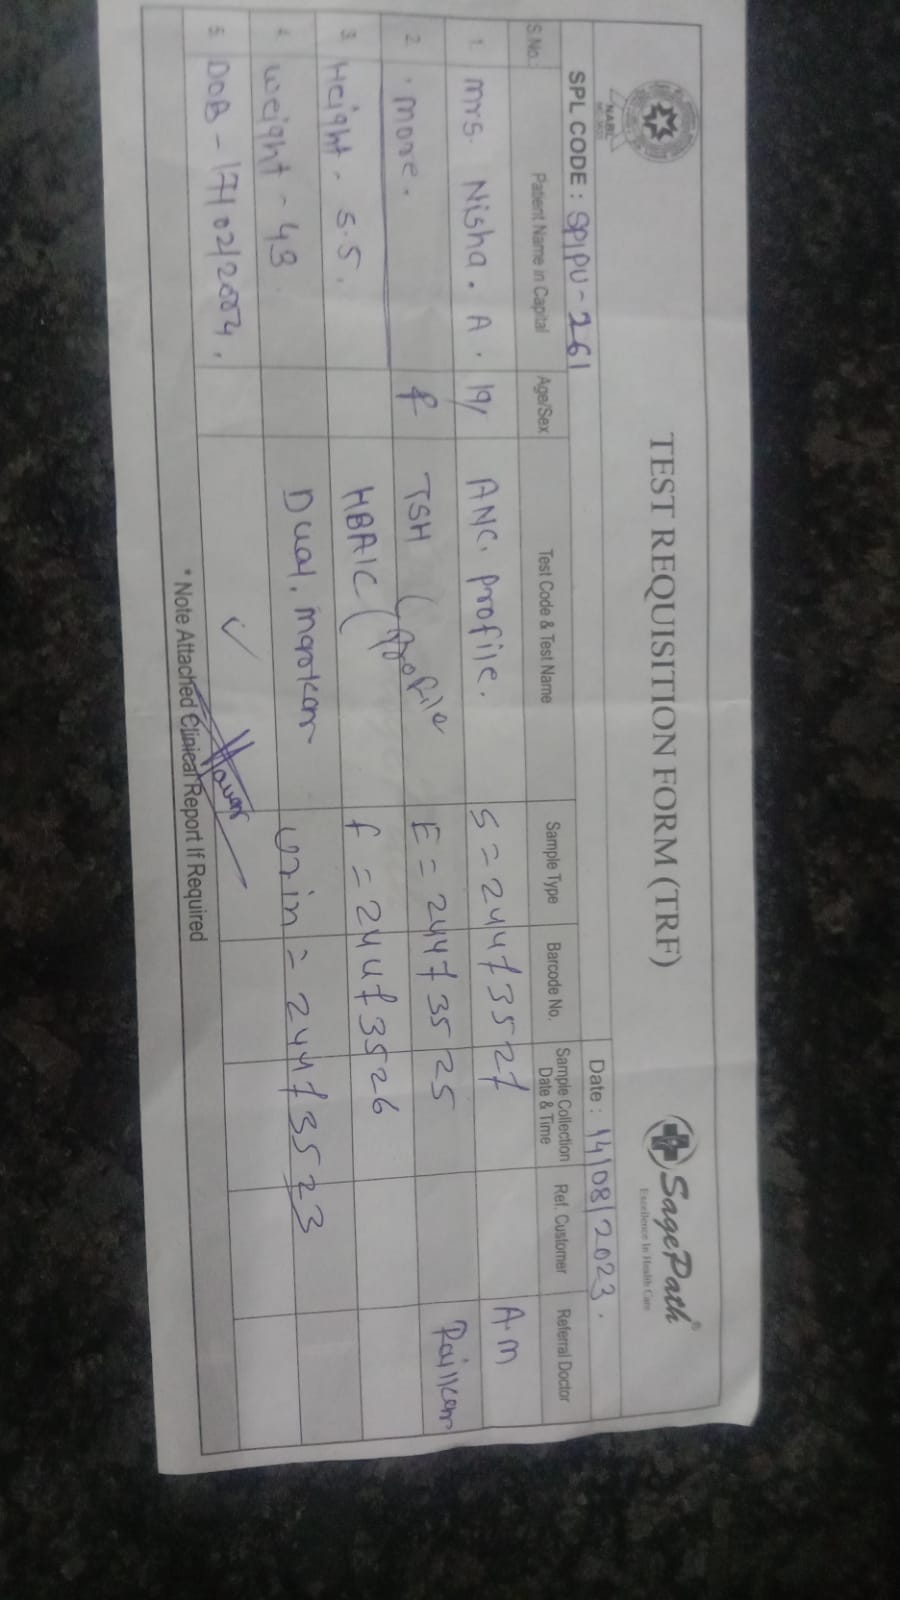 NABL
TEST REQUISITION FORM (TRF)
SagePath®
Excellence In Health Care
SPL CODE : SPIPU-261
Date : 14/08/2023.
S.No. Patient Name in Capital Age/Sex Test Code & Test Name Sample Type Barcode No. Sample Collection Date & Time Ref. Customer Referral Doctor
1. Mrs. Nisha. A. 19/ ANC. Profile. S = 24473527 A.M
2. More. f TSH (Profile E = 24473525
3. Height - 5.5. HBA1C ( f = 24473526
4. Weight - 49. Dual. marker urin = 24473523
5. DOB - 17/02/2004.
* Note Attached Clinical Report If Required